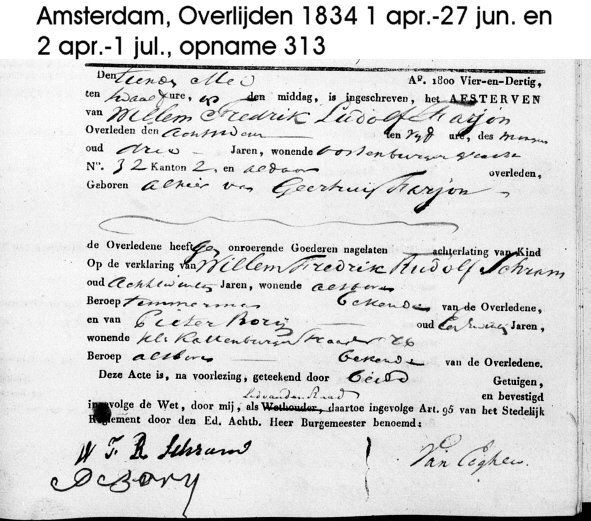 Amsterdam, Overlijden 1834 1 apr.-27 jun. en
2 apr.-1 jul., opname 313
Den tienden Mei A°. 1800 Vier-en-Dertig,
ten twaalf ure, op den middag, is ingeschreven, het AFSTERVEN
van Willem Fredrik Ludolf Harjon
Overleden den achtsten ten vijf ure, des morgens
oud drie Jaren, wonende oostenburger
N°. 32 Kanton 2, en aldaar overleden,
Geboren alhier van Geertruij Harjon
de Overledene heeft geen onroerende Goederen nagelaten achterlating van Kind
Op de verklaring van Willem Fredrik Rudolf Schram
oud Jaren, wonende alsboven
Beroep timmerman bekende van de Overledene,
en van Pieter Borij oud Jaren,
wonende Kl: Kattenburger straat 26
Beroep alsboven bekende van de Overledene.
Deze Acte is, na voorlezing, geteekend door beide Getuigen,
en bevestigd
Lid van den Raad
ingevolge de Wet, door mij, als Wethouder, daartoe ingevolge Art. 95 van het Stedelijk
Reglement door den Ed. Achtb. Heer Burgemeester benoemd:
W F R Schram
Van Eeghen
P Borij